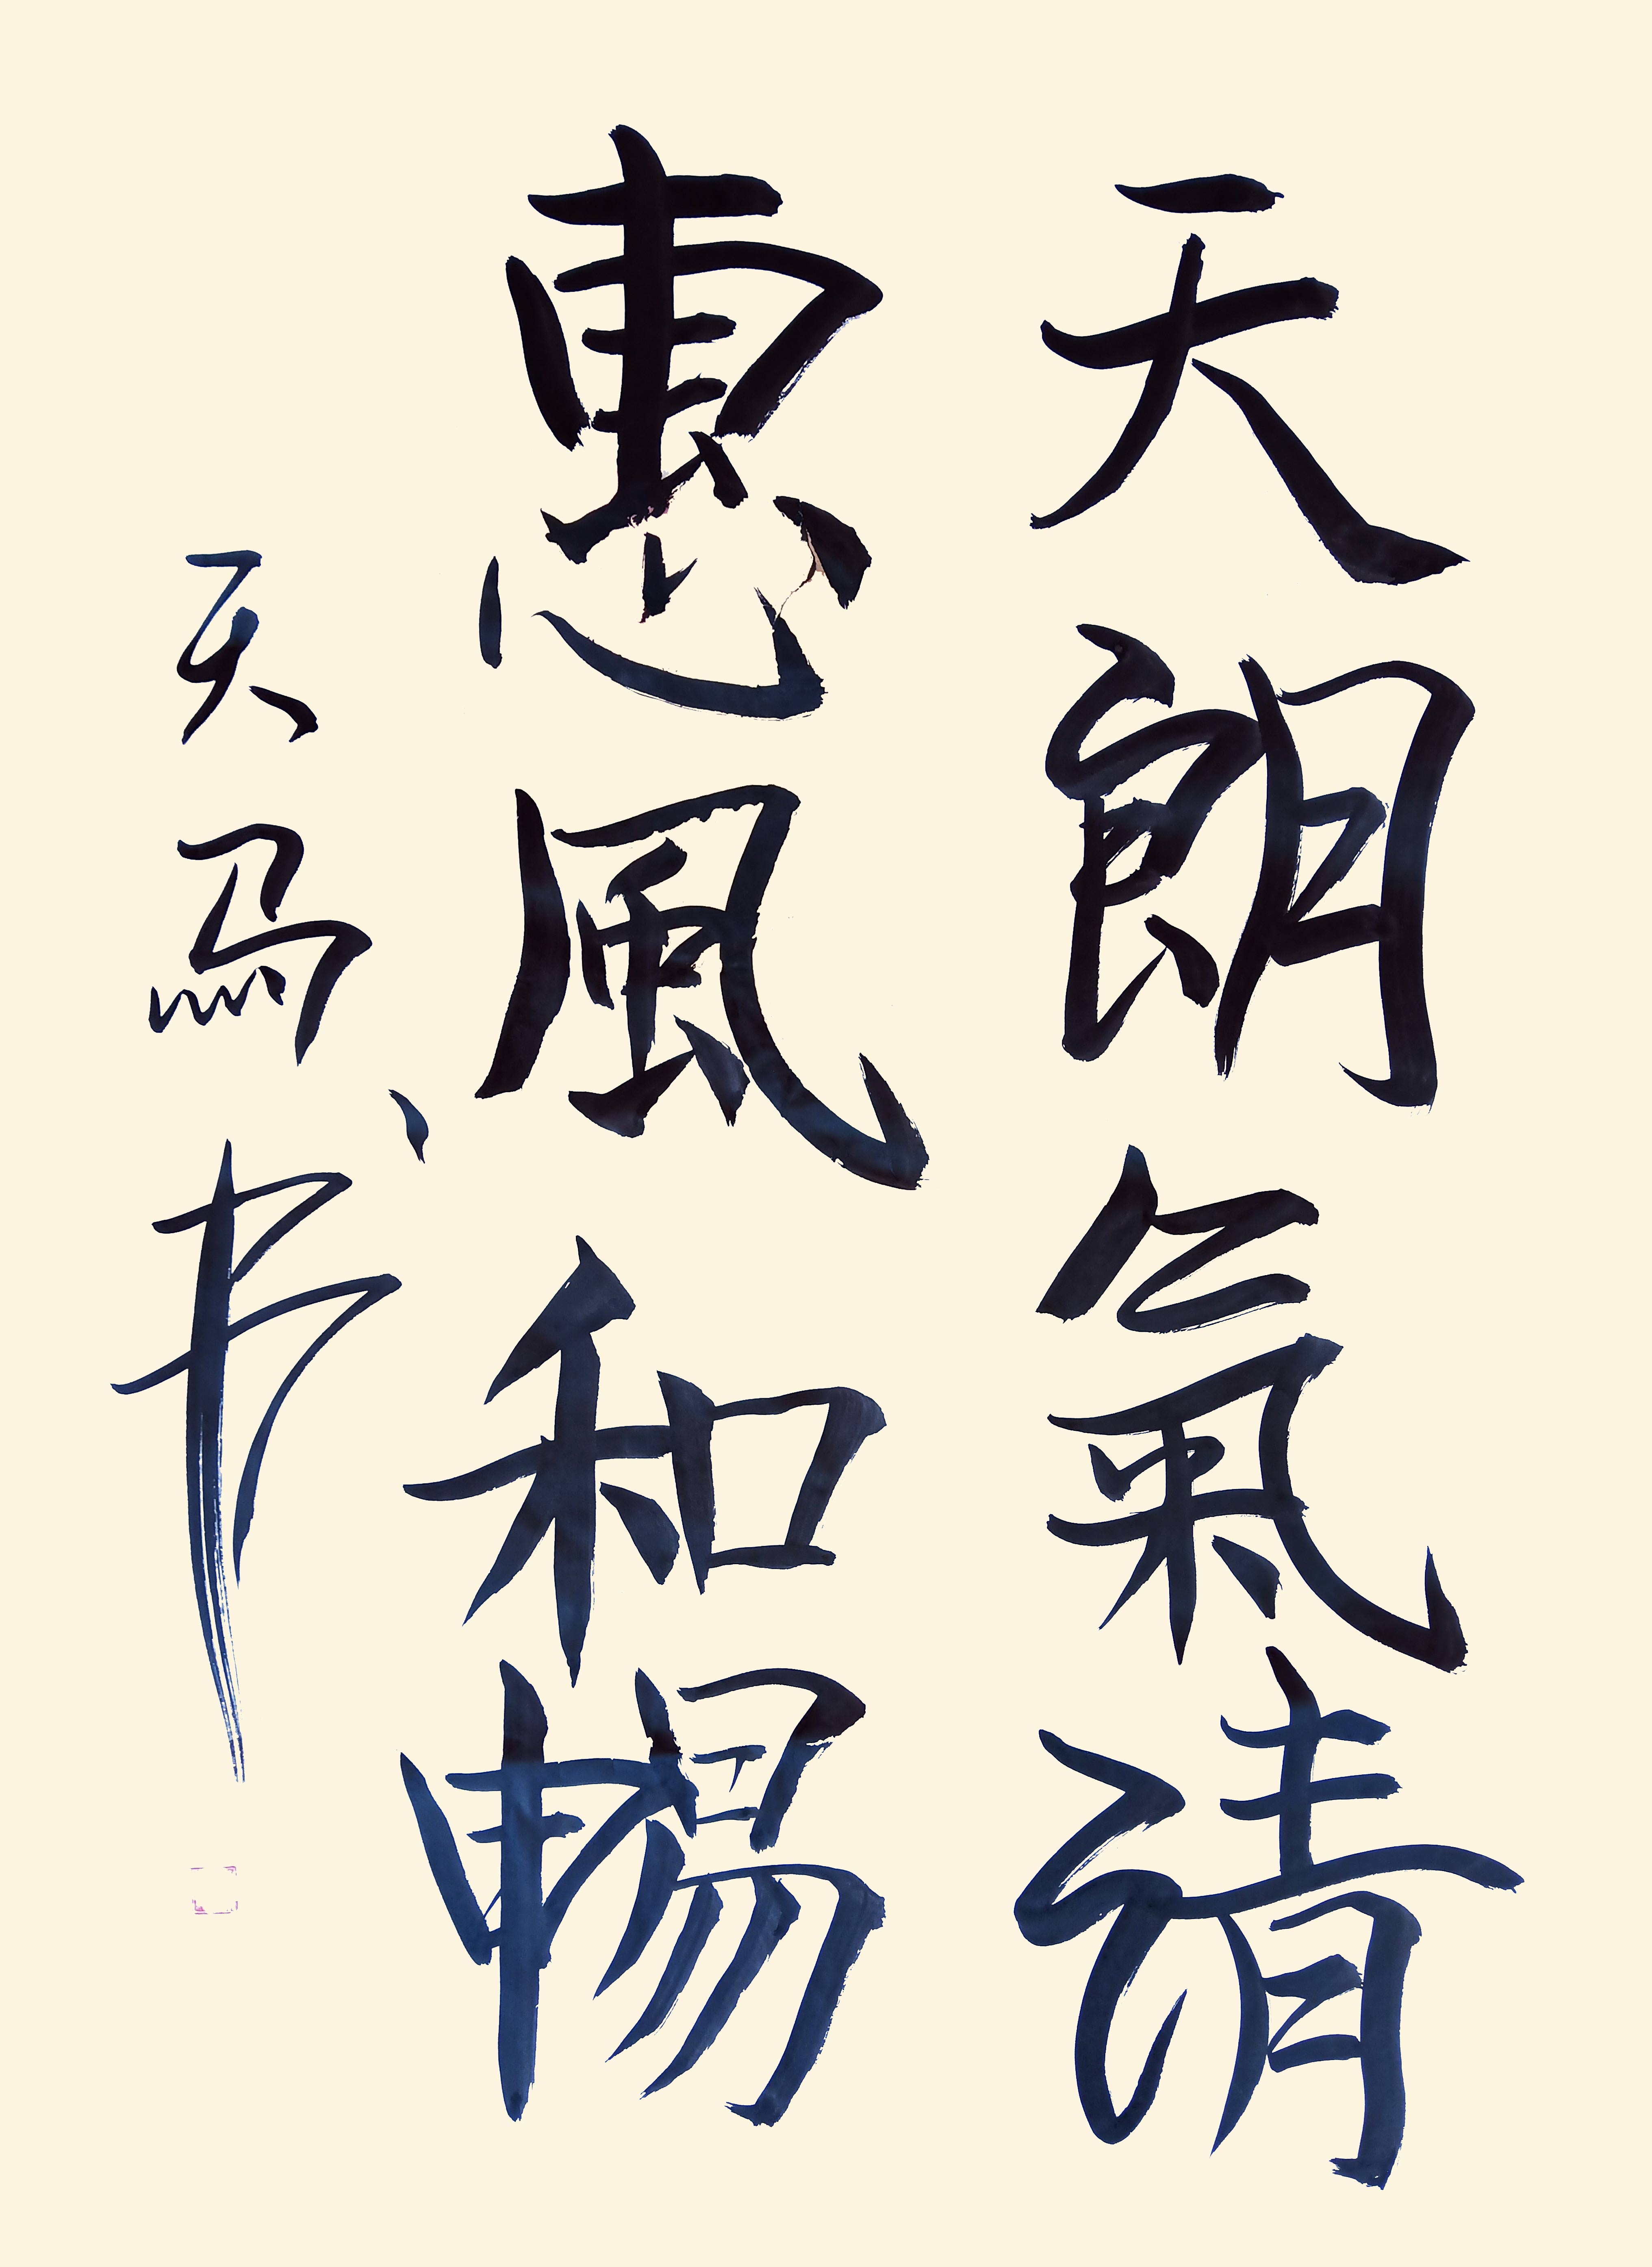 天朗氣清
惠風和暢
天馬书